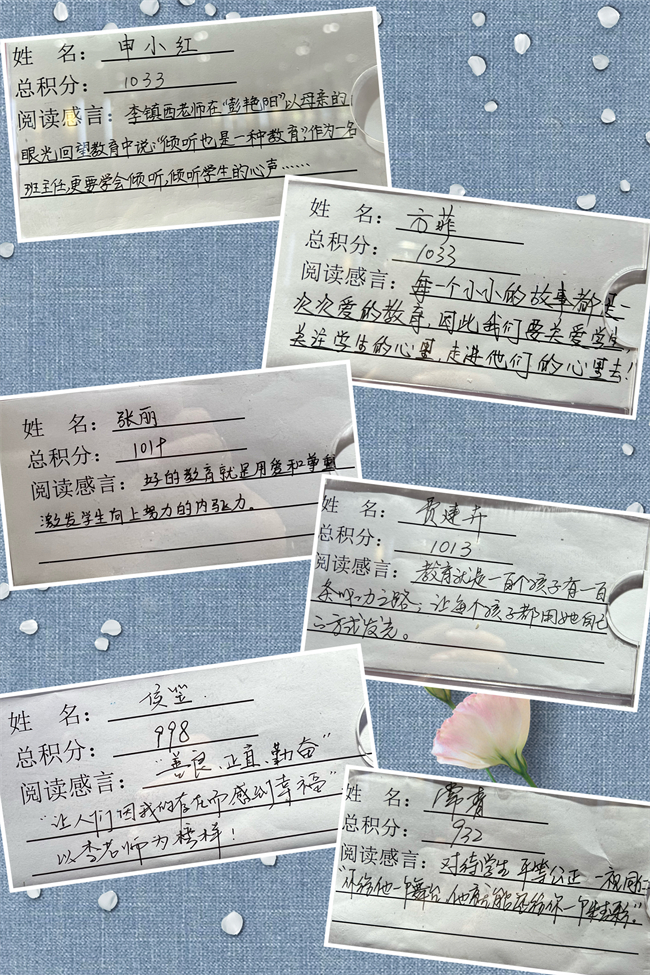 姓 名：申小红
总积分：1033
阅读感言：李镇西老师在“彭艳阳”以母亲的
眼光回望教育中说：“倾听也是一种教育”，作为一名
班主任，更要学会倾听，倾听学生的心声……
姓 名：方菲
总积分：1033
阅读感言：每一个小小的故事都是一
次次爱的教育，因此我们要关爱学生，
关注学生的心里，走进他们的心里去！
姓 名：张丽
总积分：1014
阅读感言：好的教育就是用爱和尊重
激发学生向上努力的内驱力。
姓 名：贾建卉
总积分：1013
阅读感言：教育就是一百个孩子有一百
条 之路；让每个孩子都用她自己
方式发光。
姓 名：侯
总积分：998
阅读感言：“善良、正直、勤奋”
“让人们因我的存在而感到幸福”
以李老师为榜样！
姓 名：
总积分：932
阅读感言：对待学生 平等公正 一视同仁
“你给他一个舞台，他有可能还给你一个精彩。”